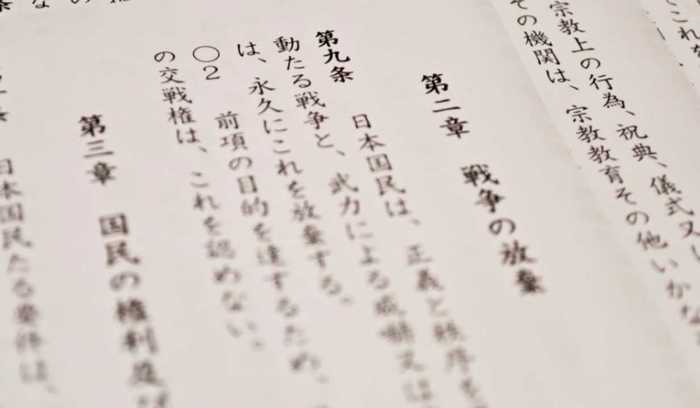 これを
宗教上の行為、祝典、儀式又は
その機関は、宗教教育その他いかな
第二章 戦争の放棄
第九条 日本国民は、正義と秩序を
動たる戦争と、武力による威嚇又は
は、永久にこれを放棄する。
○2 前項の目的を達するため、
の交戦権は、これを認めない。
第三章 国民の権利及び
条 日本国民たる要件は、